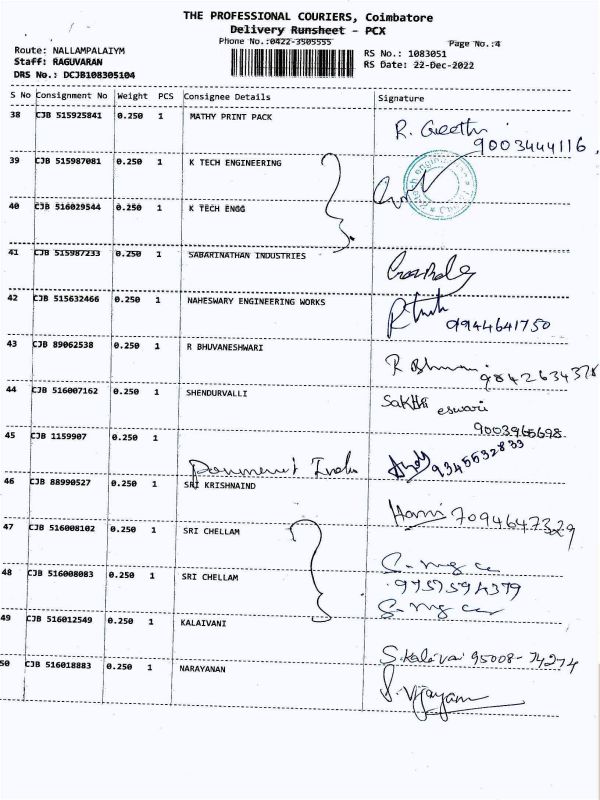 THE PROFESSIONAL COURIERS, Coimbatore
Delivery Runsheet - PCX
Phone No.:0422-3505555 Page No.:4
Route: NALLAMPALAIYM RS No.: 1083051
Staff: RAGUVARAN RS Date: 22-Dec-2022
DRS No.: DCJB108305104
S No Consignment No Weight PCS Consignee Details Signature
38 CJB 515925841 0.250 1 MATHY PRINT PACK
R. Geethi
9003444116
39 CJB 515987081 0.250 1 K TECH ENGINEERING
40 CJB 516029544 0.250 1 K TECH ENGG
41 CJB 515987233 0.250 1 SABARINATHAN INDUSTRIES
42 CJB 515632466 0.250 1 NAHESWARY ENGINEERING WORKS
9944641750
43 CJB 89062538 0.250 1 R BHUVANESHWARI
R Bhuvan
9842634378
44 CJB 516007162 0.250 1 SHENDURVALLI
Sakthi eswari
9003965698
45 CJB 1159907 0.250 1
9345532833
46 CJB 88990527 0.250 1 SRI KRISHNAIND
Hami 7094647329
47 CJB 516008102 0.250 1 SRI CHELLAM
48 CJB 516008083 0.250 1 SRI CHELLAM
9757594379
49 CJB 516012549 0.250 1 KALAIVANI
S.Kalaivai 95008-74274
50 CJB 516018883 0.250 1 NARAYANAN
S. Vijayam